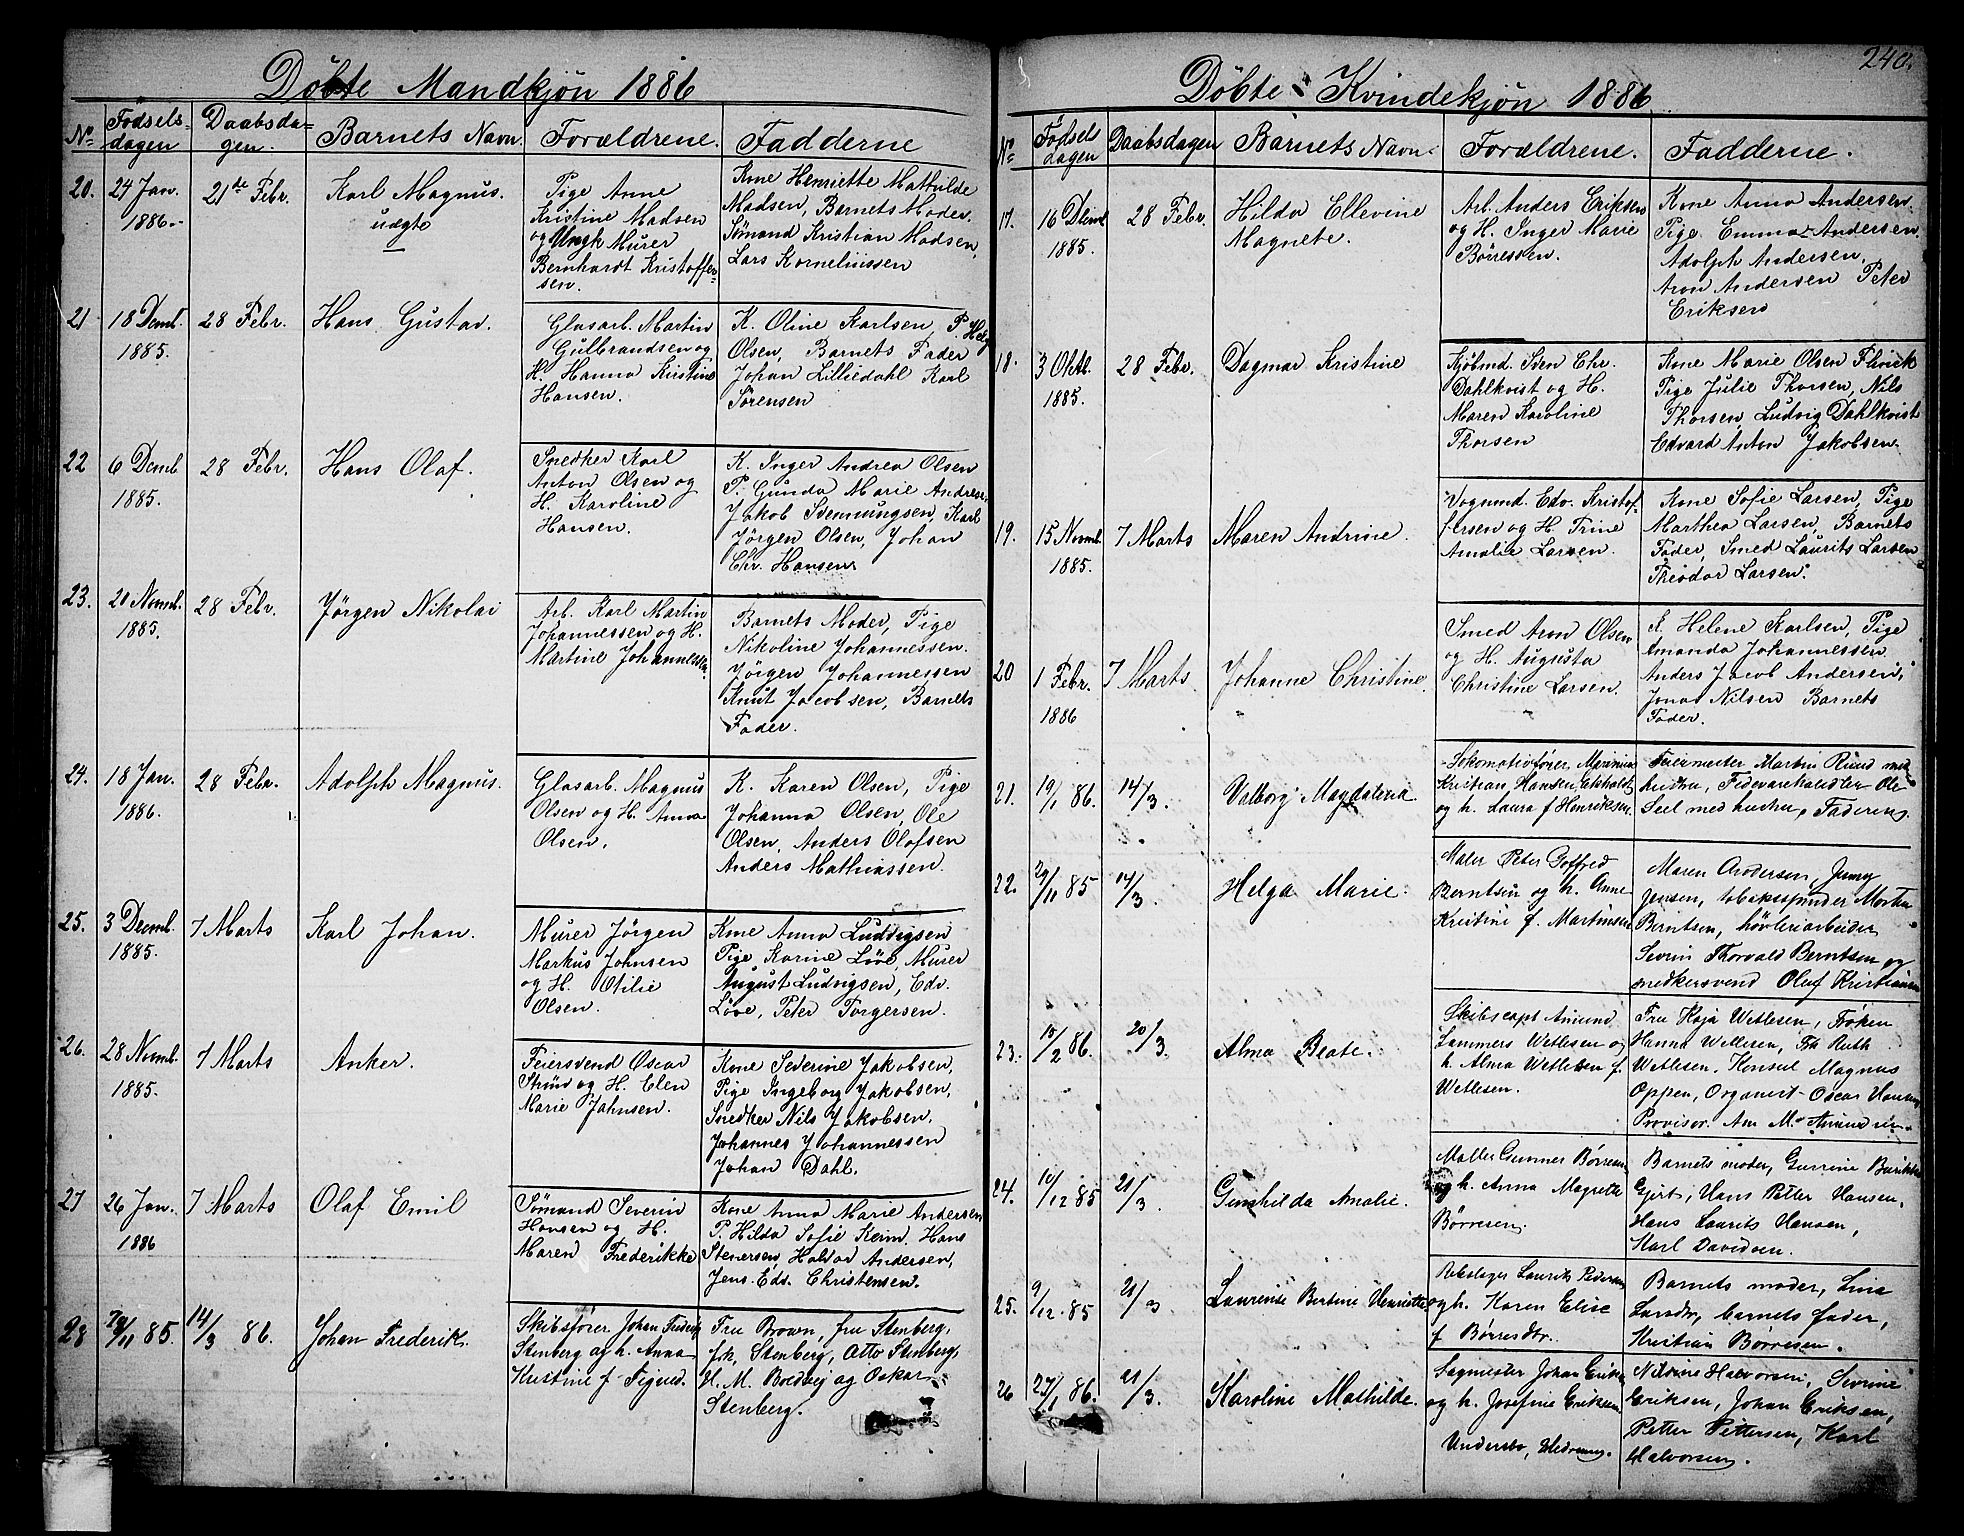 240.
Döbte Mandkjön 1886
No. Fødsels-dagen Daabsda-gen. Barnets Navn Forældrene. Fadderne
20. 24 Jan. 1886. 21de Febr. Karl Magnus. uægte
Pige Anne
Kristine Madsen
og Ungk Murer
Bernhardt Kristoffer-
sen.
Kone Henriette Mathilde
Madsen, Barnets Moder.
Sømand Kristian Madsen,
Lars Korneliussen
21 18 Demb. 1885. 28 Febr. Hans Gustav.
Glasarb. Martin
Gulbrandsen og
H. Hanna Kristine
Hansen.
K. Oline Karlsen, P. Helg
Olsen, Barnets Fader
Johan Lilliedahl Karl
Sørensen
22 6 Demb 1885. 28 Febr. Hans Olaf.
Snedker Karl
Anton Olsen og
H. Karoline
Hansen.
K. Inger Andrea Olsen
P. Gunda Marie Andresen
Jakob Svenningsen, Karl
Jørgen Olsen, Johan
Chr. Hansen
23. 20 Novmb. 1885. 28 Febr. Jørgen Nikolai
Arb. Karl Martin
Johannessen og H.
Martine Johannessen.
Barnets Moder, Pige
Nikoline Johannessen.
Jørgen Johannessen
Knut Jacobsen, Barnets
Fader.
24. 18 Jan. 1886. 28 Febr. Adolph Magnus.
Glasarb. Magnus
Olsen og H. Anna
Olsen.
K. Karen Olsen, Pige
Johanna Olsen, Ole
Olsen, Anders Olofsen
Anders Mathiassen.
25. 3 Decmb. 1885. 7 Marts Karl Johan.
Murer Jørgen
Markus Johnsen
og H. Otilie
Olsen.
Kone Anna Ludvigsen
Pige Karine Løve, Murer
August Ludvigsen, Edv.
Løve, Peter Torgersen.
26. 28 Novmb. 1885. 7 Marts Anker.
Feiersvend Oscar
Strüd og H. Elen
Marie Jahnsen.
Kone Severine Jakobsen,
Pige Ingeborg Jakobsen,
Snedker Nils Jakobsen,
Johannes Johannessen
Johan Dahl.
27 26 Jan. 1886 7 Marts Olaf Emil
Sømand Severin
Hansen og H.
Maren Frederikke
Kone Anna Marie Andersen
P. Hilda Sofie Keim, Hans
Stenersen, Haldor Andersen,
Jens Edv. Christensen.
28 /11 85. 14/3 86. Johan Frederik.
Skibsfører Johan Fredrik
Stenberg og h. Anna
Kristine f. Figued.
Fru Brown, fru Stenberg,
frk. Stenberg, Otto Stenberg,
H. M. Boedvej og Oskar
Stenberg.
Döbte Kvindekjön 1886
No. Fødsels dagen Daabsdagen Barnets Navn. Forældrene. Fadderne.
17. 16 Dcmb 1885. 28 Febr. Hilda Ellevine Magnete.
Arb. Anders Eriksen
og H. Inger Marie
Börresen.
Kone Anna Andersen.
Pige Emma Andersen.
Adolph Andersen,
Aron Andersen Peter
Eriksen
18. 3 Oktb. 1885. 28 Febr. Dagmar Kristine
Kjöbmd. Sven Chr.
Dahlkvist og H.
Maren Karoline
Thorsen
Kone Marie Olsen Flivik
Pige Julie Thorsen, Nils
Thorsen, Ludvig Dahlkvist
Edvard Anton Jakobsen
19. 15 Novmb. 1885. 7 Marts Maren Andrine.
Vognmd. Edv. Kristof-
fersen og H. Trine
Amalie Larsen.
Kone Sofie Larsen, Pige
Marthea Larsen, Barnets
Fader, Smed Laurits Larsen
Theodor Larsen.
20 1 Febr. 1886 7 Marts Johanne Christine.
Smed Aron Olsen
og H. Augusta
Christine Larsen.
K. Helene Karlsen, Pige
Amanda Johannessen
Anders Jacob Andersen,
Jonas Nilsen Barnets
Fader.
21. 19/1 86. 14/3. Valborg Magdalena.
Lokomotivfører
Kristian Hansen
og h. Laura f Henriksen.
Feiermester Martin Ruud med
hustru, Fedevarehandler Ole
Seel med hustru, Faderen.
22. 29/11 85 14/3. Helga Marie.
Maler Peter Gotfred
Berntsen og h. Anne
Kristine f. Martinsen
Maren Andersen, Jenny
Jensen, tobaksspinder Morten
Berntsen, høvleriarbeider
Severin Thorvald Berntsen og
snedkersvend Oluf Kristiansen
23. 15/2 86. 20/3. Alma Beate.
Skibscapt Amund
Lammers Wetlesen og
h. Alma Wetlesen f.
Wetlesen.
Fru Kaja Wetlesen, Frøken
Hanna Wetlesen, Frk Ruth
Wetlesen, Konsul Magnus
Oppen, Organist Oscar Hansen
Provisor
24. 10/12 85 21/3. Gunhilda Amalie.
Møller Gunner Børresen
og h. Anna Magrethe
Børresen.
Barnets moder, Gurrine
Gjert, Hans Petter Hansen,
Hans Laurits Hansen,
Karl Davidsen.
25. 9/12 85 21/3. Laurense Bertine Henriette
Rebslager Laurits Pedersen
og h. Karen Elise
f Børresdtr.
Barnets moder, Lina
Larsdtr, barnets fader,
Kristian Børresen.
26 27/1 86. 21/3. Karoline Mathilde.
Sagmester Johan Eriksen
og h. Josefine Eriksen
Undersbo, Hedrum.
Nilsine Halvorsen, Sevrine
Eriksen, Johan Eriksen,
Petter Pettersen, Karl
Halvorsen.